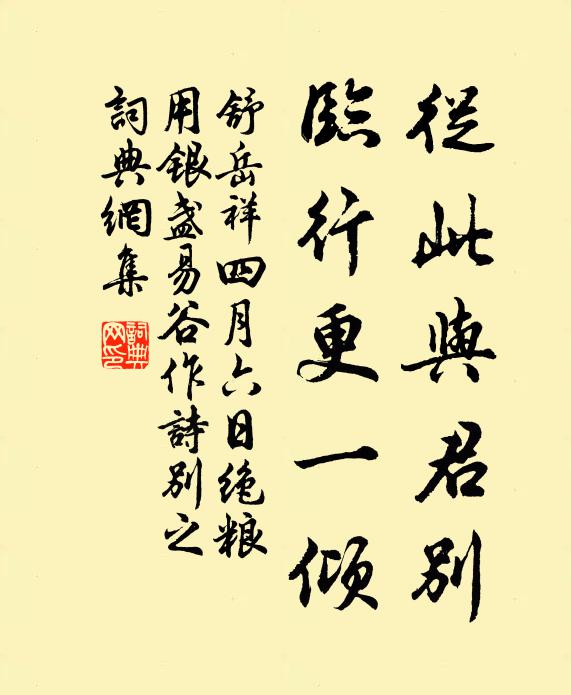 從此與君別
臨行更一傾
舒岳祥四月六日绝粮
用銀盞易谷作詩别之
詞典網集
詞典網印